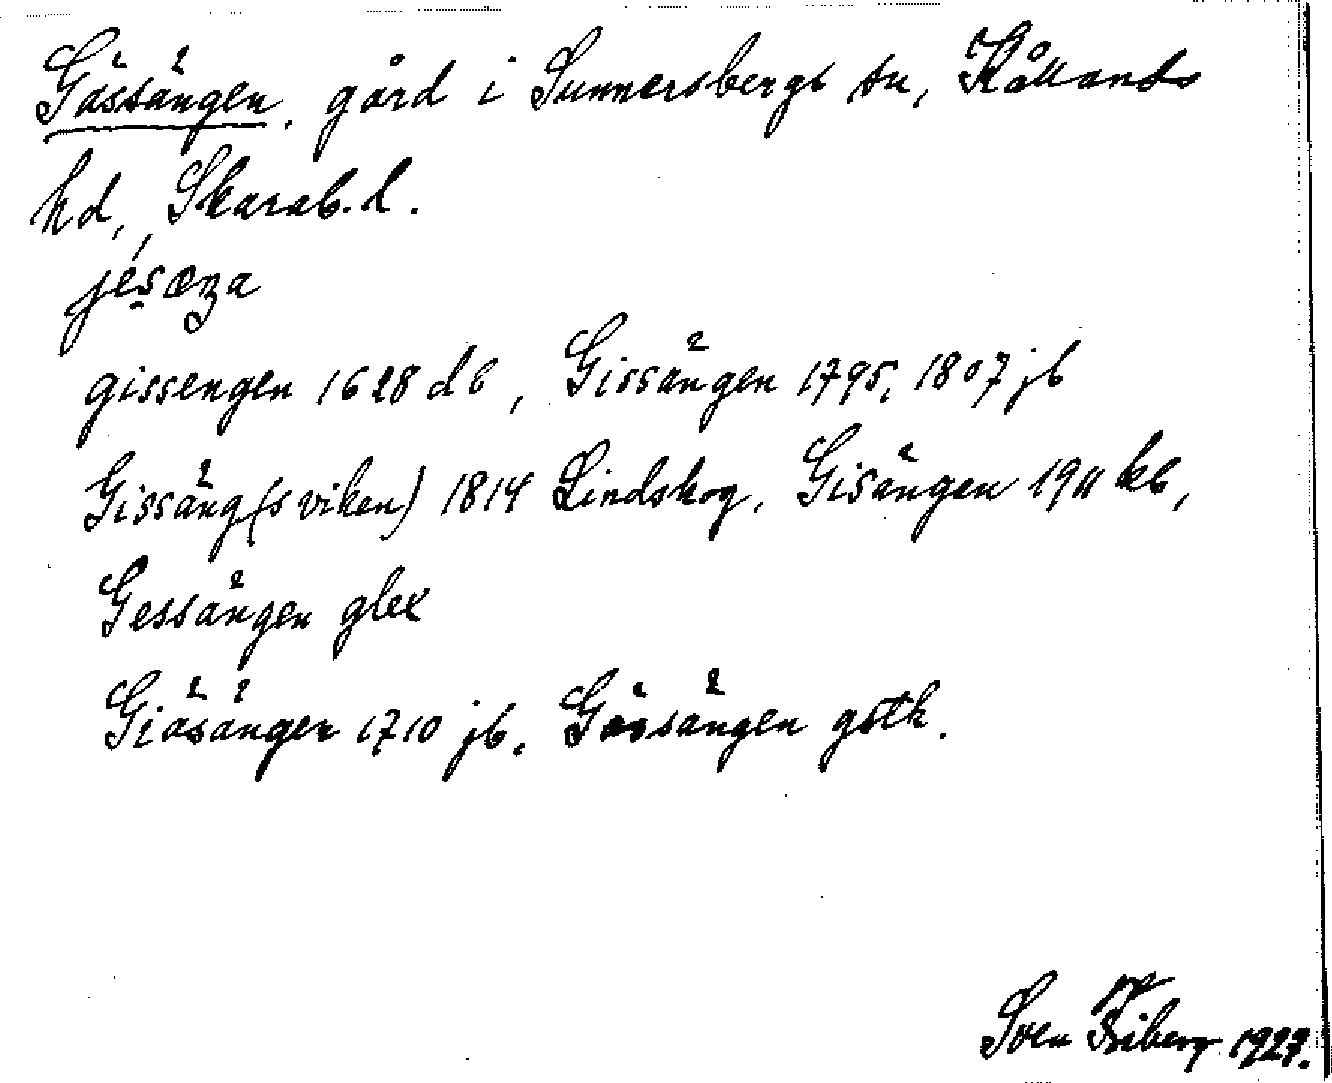 Gässängen, gård i Sunnersbergs sn, Kållands
hd, Skarab.l.
gissengen 1628 db, Gissängen 1795, 1807 jb
Gissäng(sviken) 1814 Lindskog, Gisängen 1911 kb,
Gessängen glex
Giäsänger 1710 jb, Gässängen göth.
Sven Friberg 1927.